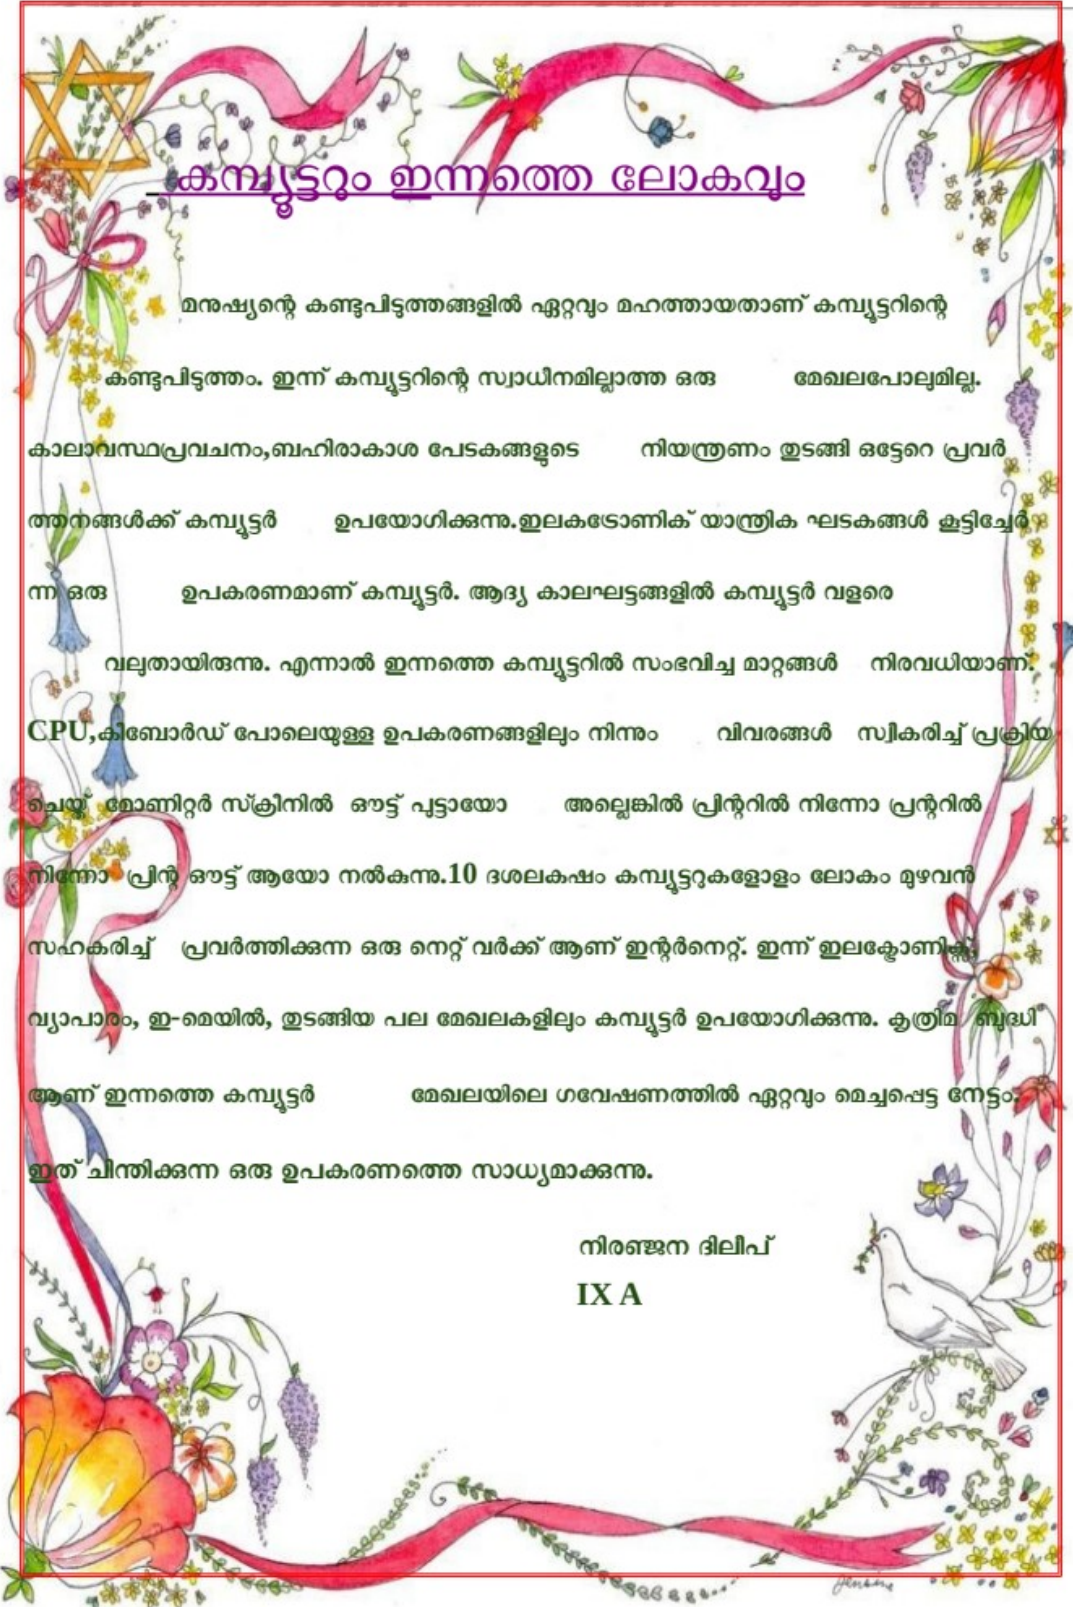 കമ്പ്യൂട്ടറും ഇന്നത്തെ ലോകവും
മനുഷ്യന്റെ കണ്ടുപിടുത്തങ്ങളിൽ ഏറ്റവും മഹത്തായതാണ് കമ്പ്യൂട്ടറിന്റെ
കണ്ടുപിടുത്തം. ഇന്ന് കമ്പ്യൂട്ടറിന്റെ സ്വാധീനമില്ലാത്ത ഒരു മേഖലപോലുമില്ല.
കാലാവസ്ഥപ്രവചനം,ബഹിരാകാശ പേടകങ്ങളുടെ നിയന്ത്രണം തുടങ്ങി ഒട്ടേറെ പ്രവർ
ത്തനങ്ങൾക്ക് കമ്പ്യൂട്ടർ ഉപയോഗിക്കുന്നു.ഇലകട്രോണിക് യാന്ത്രിക ഘടകങ്ങൾ കൂട്ടിച്ചേർ
ന്ന ഒരു ഉപകരണമാണ് കമ്പ്യൂട്ടർ. ആദ്യ കാലഘട്ടങ്ങളിൽ കമ്പ്യൂട്ടർ വളരെ
വലുതായിരുന്നു. എന്നാൽ ഇന്നത്തെ കമ്പ്യൂട്ടറിൽ സംഭവിച്ച മാറ്റങ്ങൾ നിരവധിയാണ്.
CPU,കീബോർഡ് പോലെയുള്ള ഉപകരണങ്ങളിലും നിന്നും വിവരങ്ങൾ സ്വീകരിച്ച് പ്രക്രിയ
ചെയ്ത് മോണിറ്റർ സ്ക്രീനിൽ ഔട്ട് പുട്ടായോ അല്ലെങ്കിൽ പ്രിന്ററിൽ നിന്നോ പ്രന്ററിൽ
നിന്നോ പ്രിന്റ് ഔട്ട് ആയോ നൽകുന്നു.10 ദശലകഷം കമ്പ്യൂട്ടറുകളോളം ലോകം മുഴവൻ
സഹകരിച്ച് പ്രവർത്തിക്കുന്ന ഒരു നെറ്റ് വർക്ക് ആണ് ഇന്റർനെറ്റ്. ഇന്ന് ഇലക്ട്രോണിക്സ്,
വ്യാപാരം, ഇ-മെയിൽ, തുടങ്ങിയ പല മേഖലകളിലും കമ്പ്യൂട്ടർ ഉപയോഗിക്കുന്നു. കൃത്രിമ ബുദ്ധി
ആണ് ഇന്നത്തെ കമ്പ്യൂട്ടർ മേഖലയിലെ ഗവേഷണത്തിൽ ഏറ്റവും മെച്ചപ്പെട്ട നേട്ടം.
ഇത് ചിന്തിക്കുന്ന ഒരു ഉപകരണത്തെ സാധ്യമാക്കുന്നു.
നിരഞ്ജന ദിലീപ്
IX A